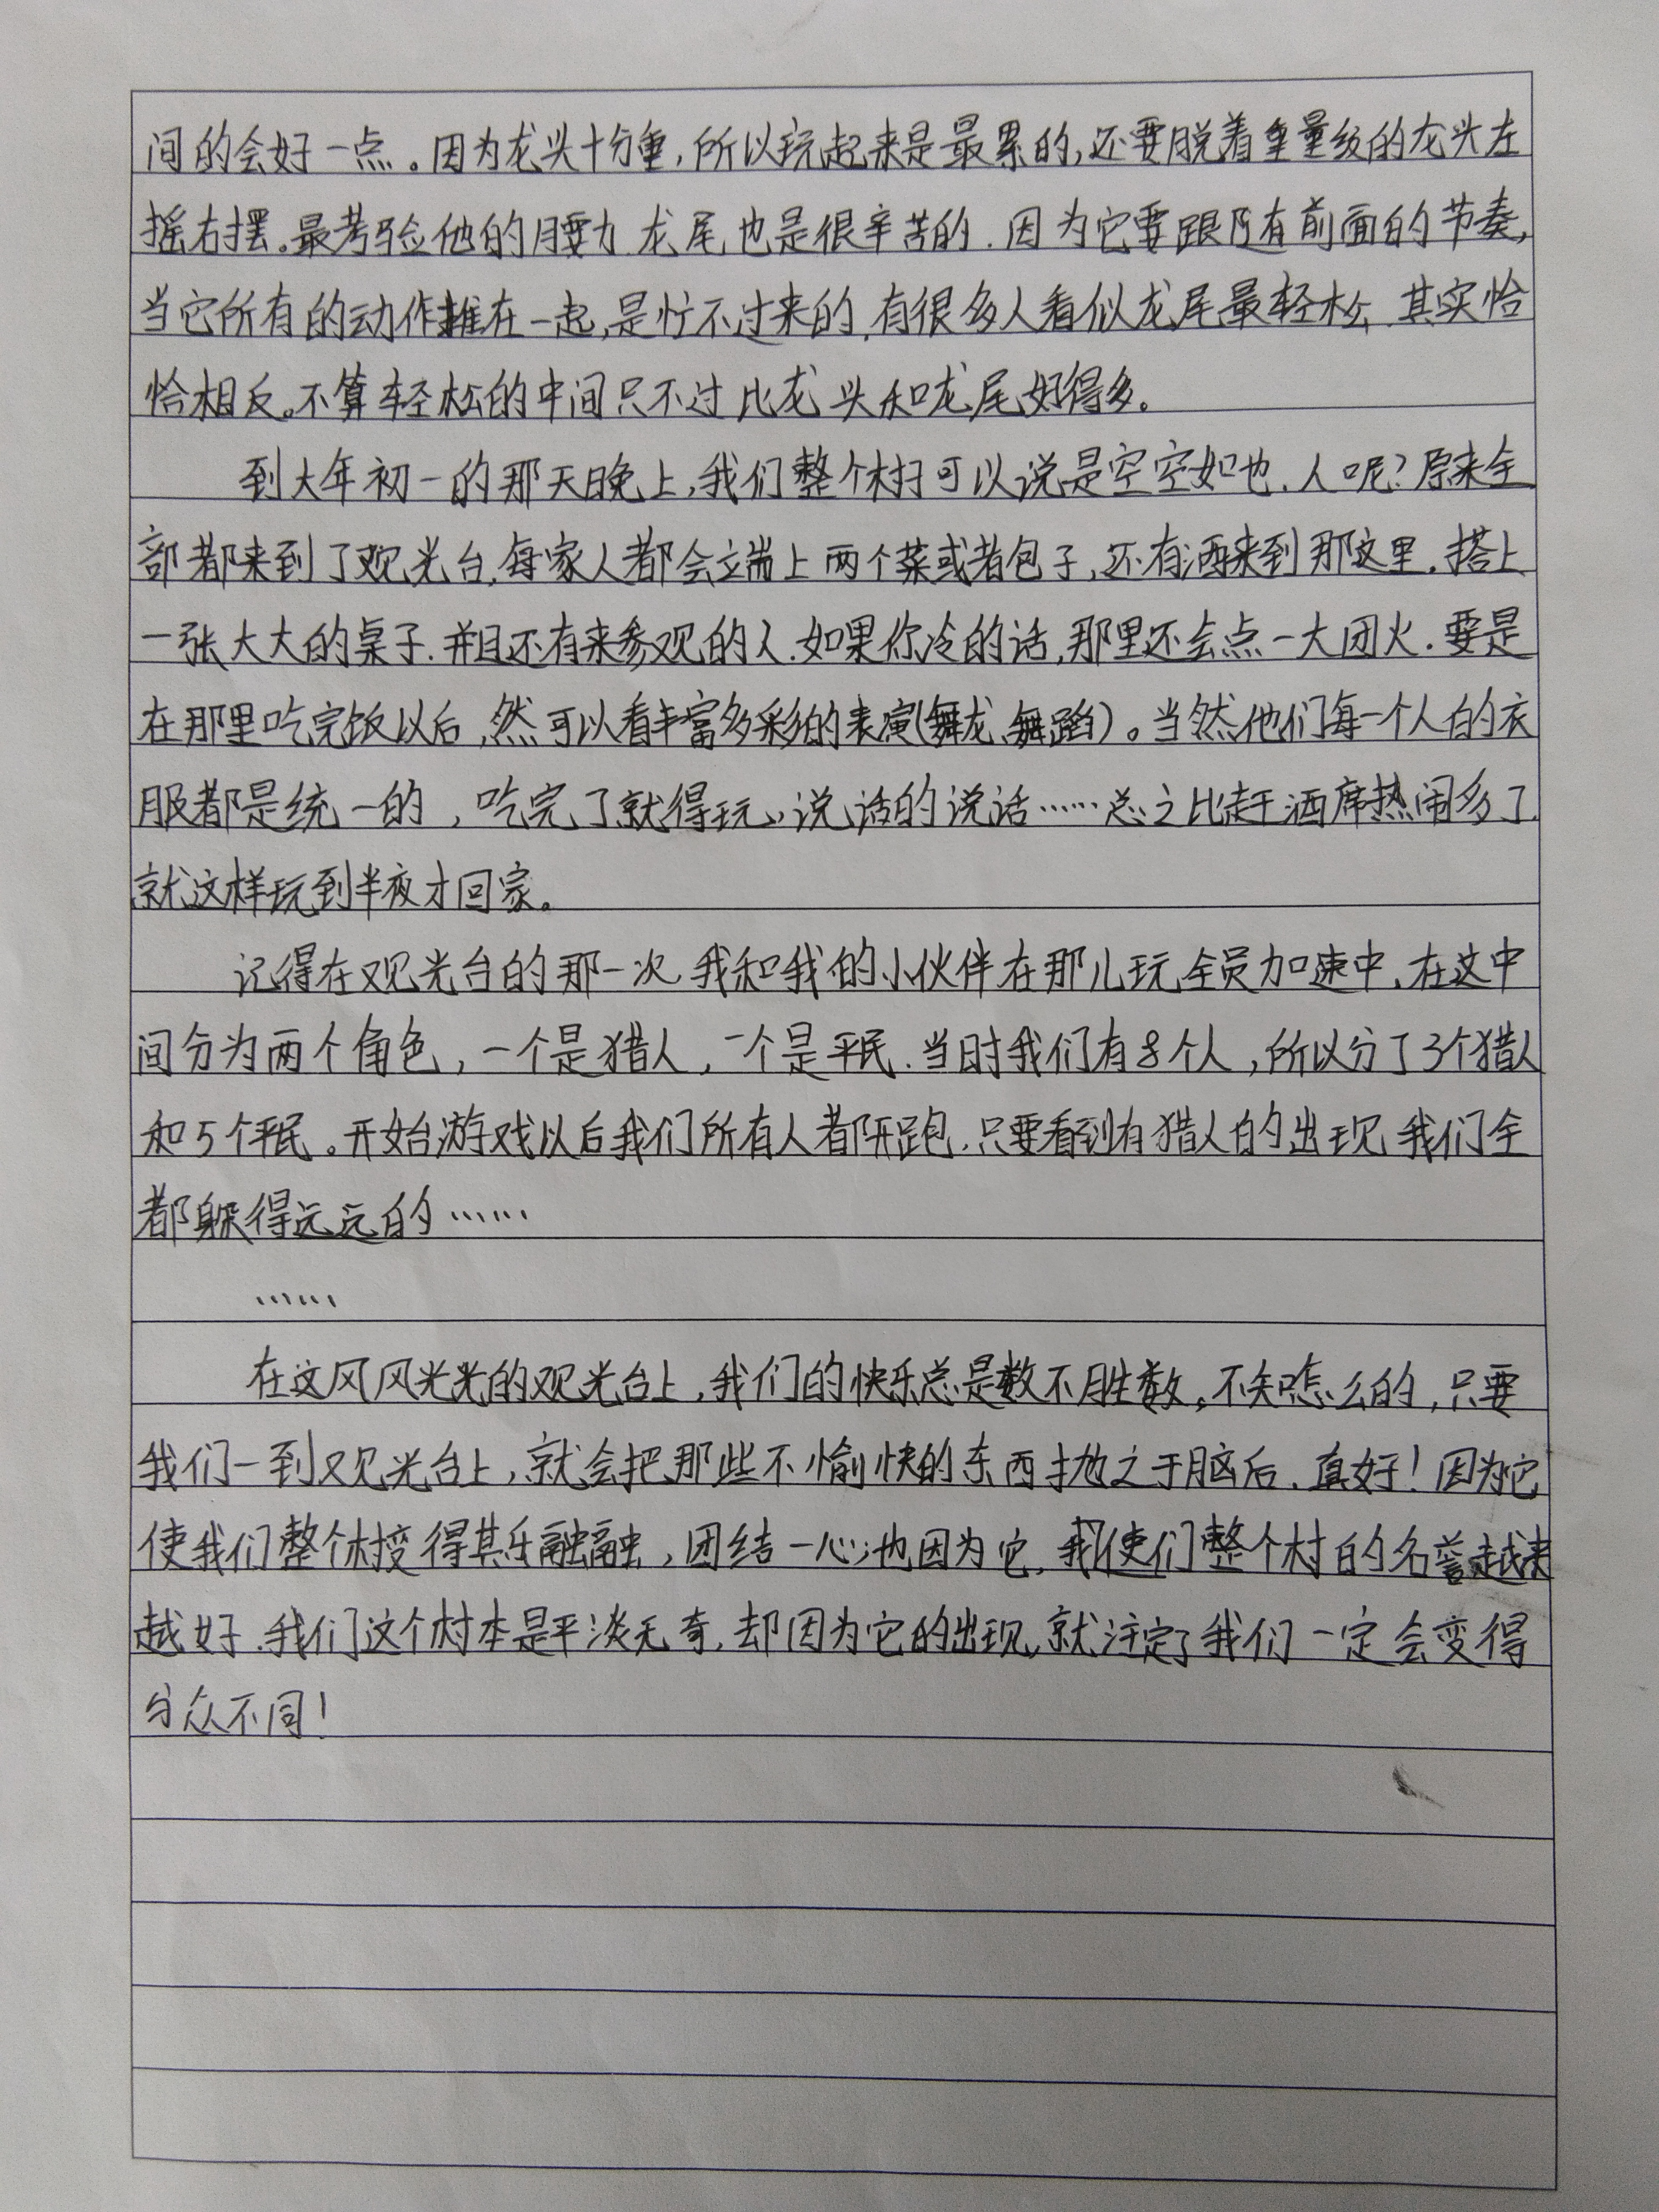 间的会好一点。因为龙头十分重,所以玩起来是最累的,还要脱着重量级的龙头左
摇右摆。最考验他的腰力.龙尾也是很辛苦的.因为它要跟所有前面的节奏,
当它所有的动作推在一起,是忙不过来的,有很多人看似龙尾最轻松.其实恰
恰相反。不算轻松的中间只不过比龙头和龙尾好得多。
到大年初一的那天晚上,我们整个村可以说是空空如也.人呢?原来全
部都来到了观光台.每家人都会端上两个菜或者包子,还有酒来到那这里.搭上
一张大大的桌子.并且还有来参观的人.如果你冷的话,那里还会点一大团火.要是
在那里吃完饭以后,然可以看丰富多彩的表演(舞龙、舞蹈)。当然他们每一个人的衣
服都是统一的,吃完了就得玩,说话的说话……总之比赶酒席热闹多了.
就这样玩到半夜才回家。
记得在观光台的那一次.我和我的小伙伴在那儿玩全员加速中.在这中
间分为两个角色,一个是猎人,一个是平民.当时我们有8个人,所以分了3个猎人
和5个平民。开始游戏以后我们所有人都开跑.只要看到有猎人的出现.我们全
都躲得远远的……
……
在这风风光光的观光台上,我们的快乐总是数不胜数。不知怎么的,只要
我们一到观光台上,就会把那些不愉快的东西抛之于脑后.真好!因为它
使我们整个村变得其乐融融,团结一心;也因为它,使我们整个村的名誉越来
越好.我们这个村本是平淡无奇,却因为它的出现,就注定了我们一定会变得
与众不同!